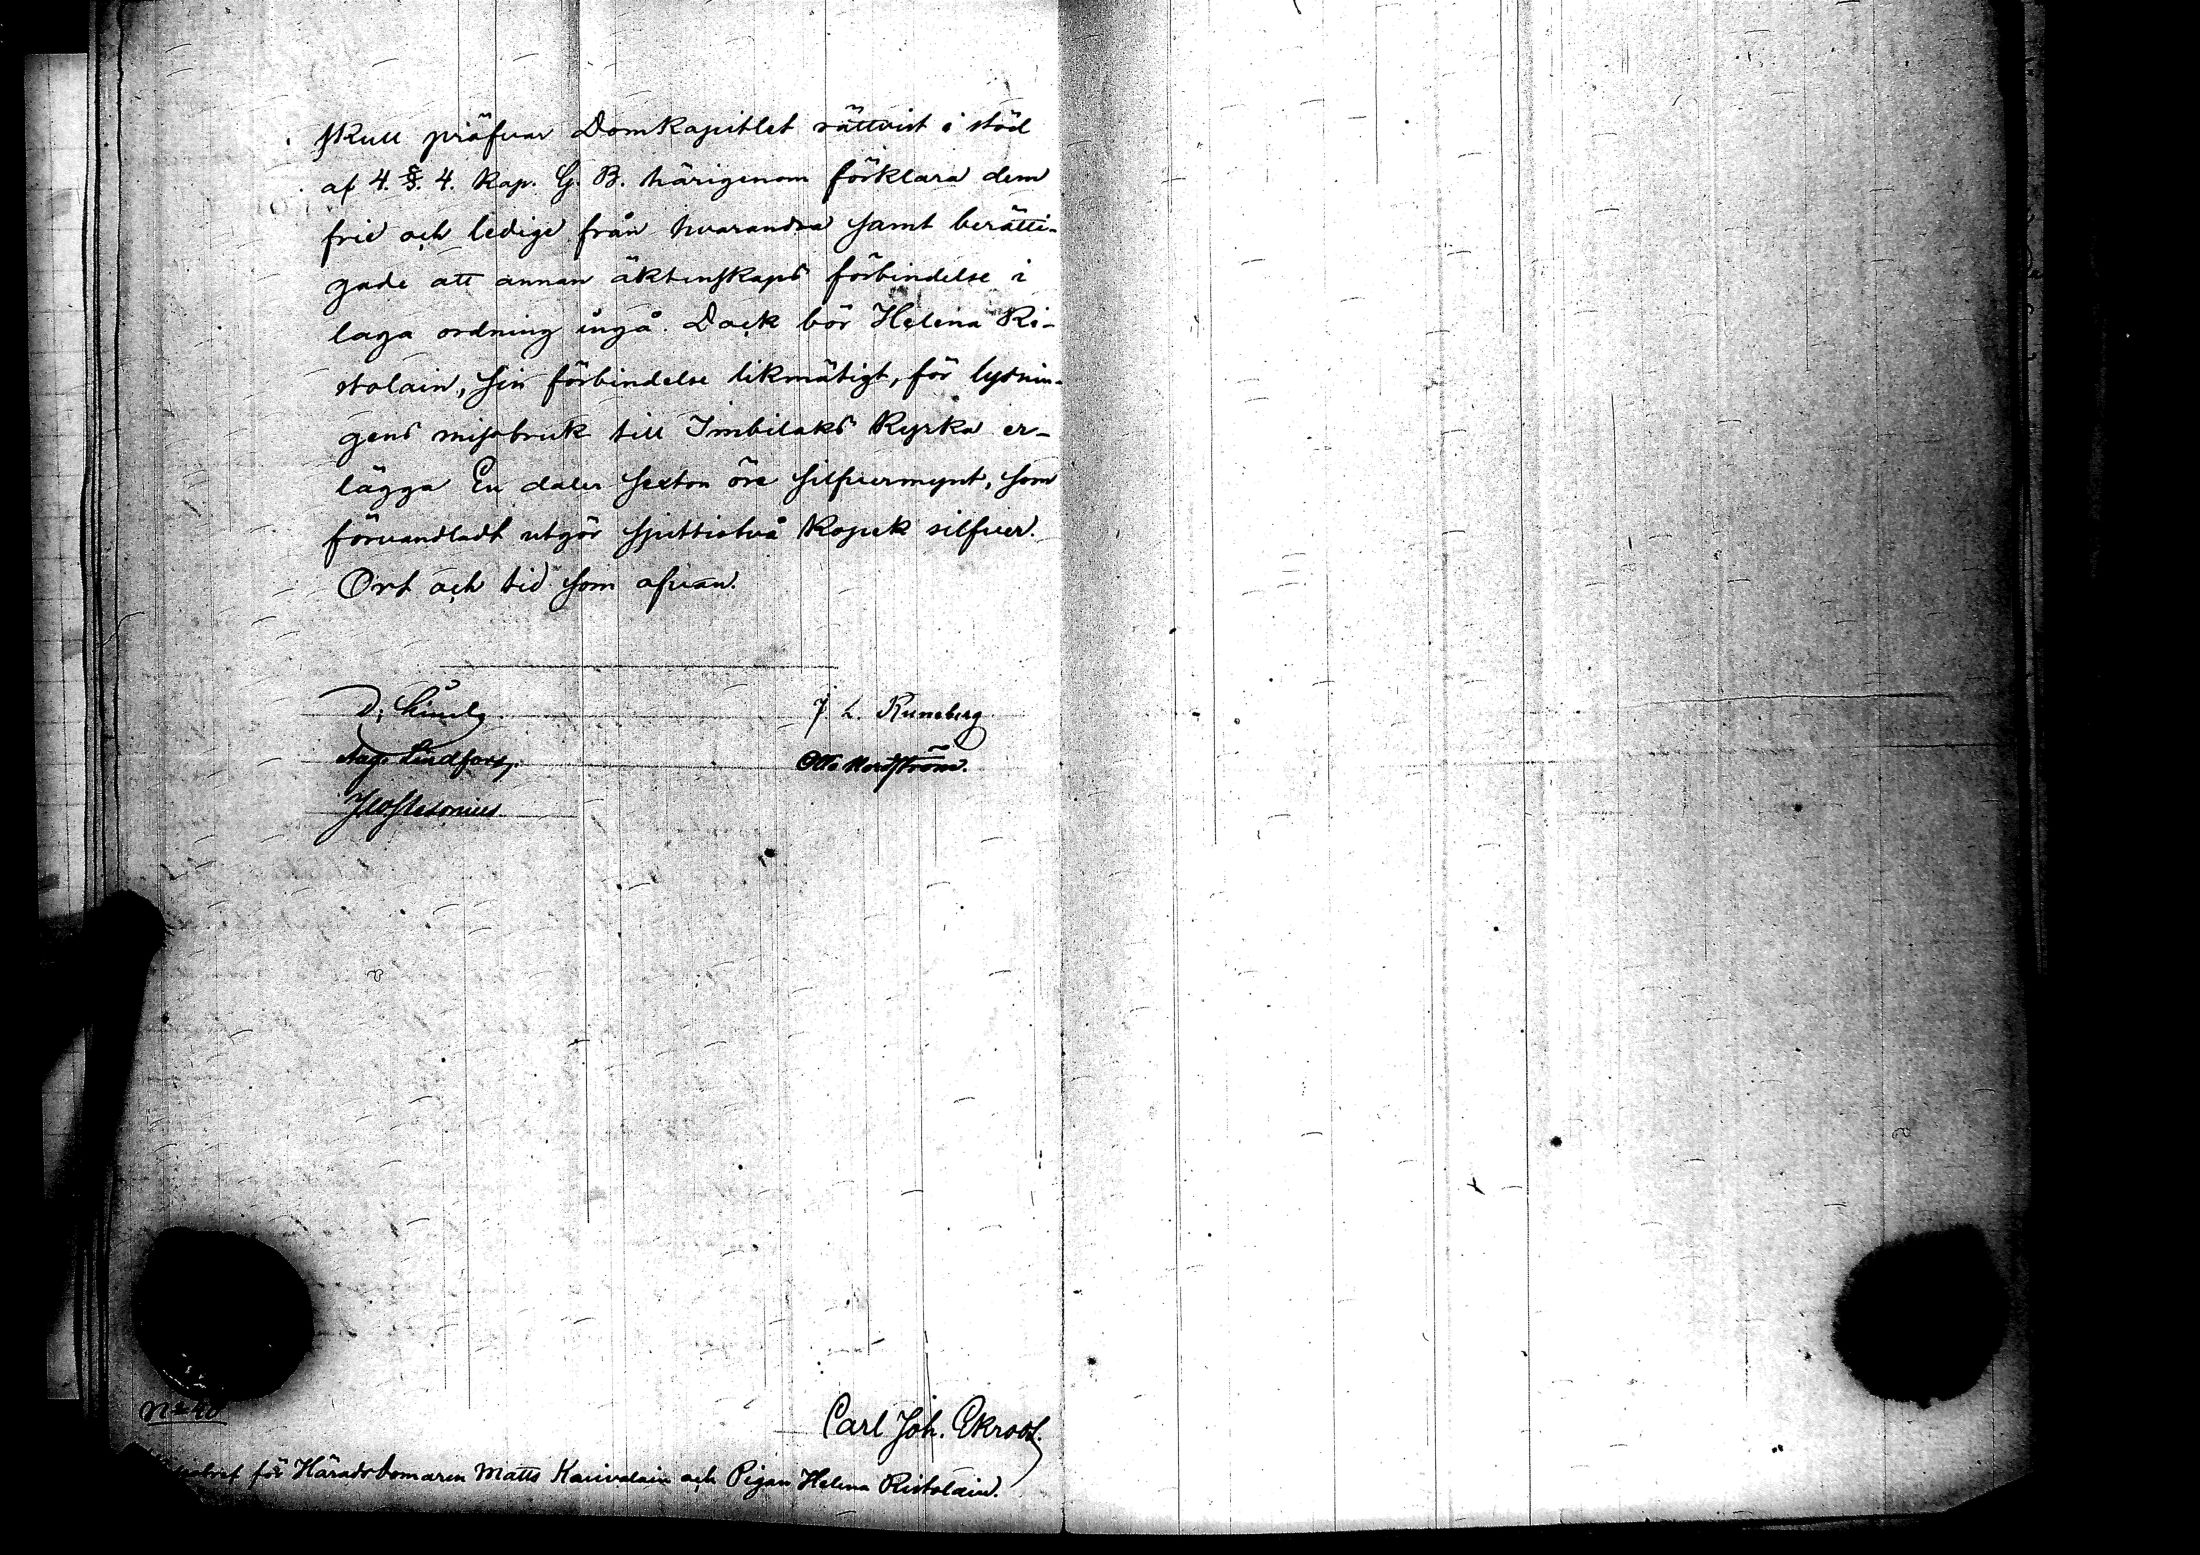 skull pröfvar Domkapitlet rättvist i stöd
af 4. §. 4. Kap. G. B. härigenom förklara dem
frie och ledige från hvarandra samt berätti-
gade att annan äktenskaps förbindelse i
laga ordning ingå. Dock bör Helena Ri-
stolain, sin förbindelse likmätigt, för lysnin-
gens missbruk till Imbilaks Kyrka er-
lägga En daler sexton öre silfvermynt, som
förvandladt utgör sjuttiotvå Kopek silfver.
Ort och tid som ofvan.
J. L. Runeberg
Aug. Lindfors
Otto Nordström.
Carl Joh. Ekroos.
för Häradsdomaren Matts Karivalain och Pigan Helena Ristolain.